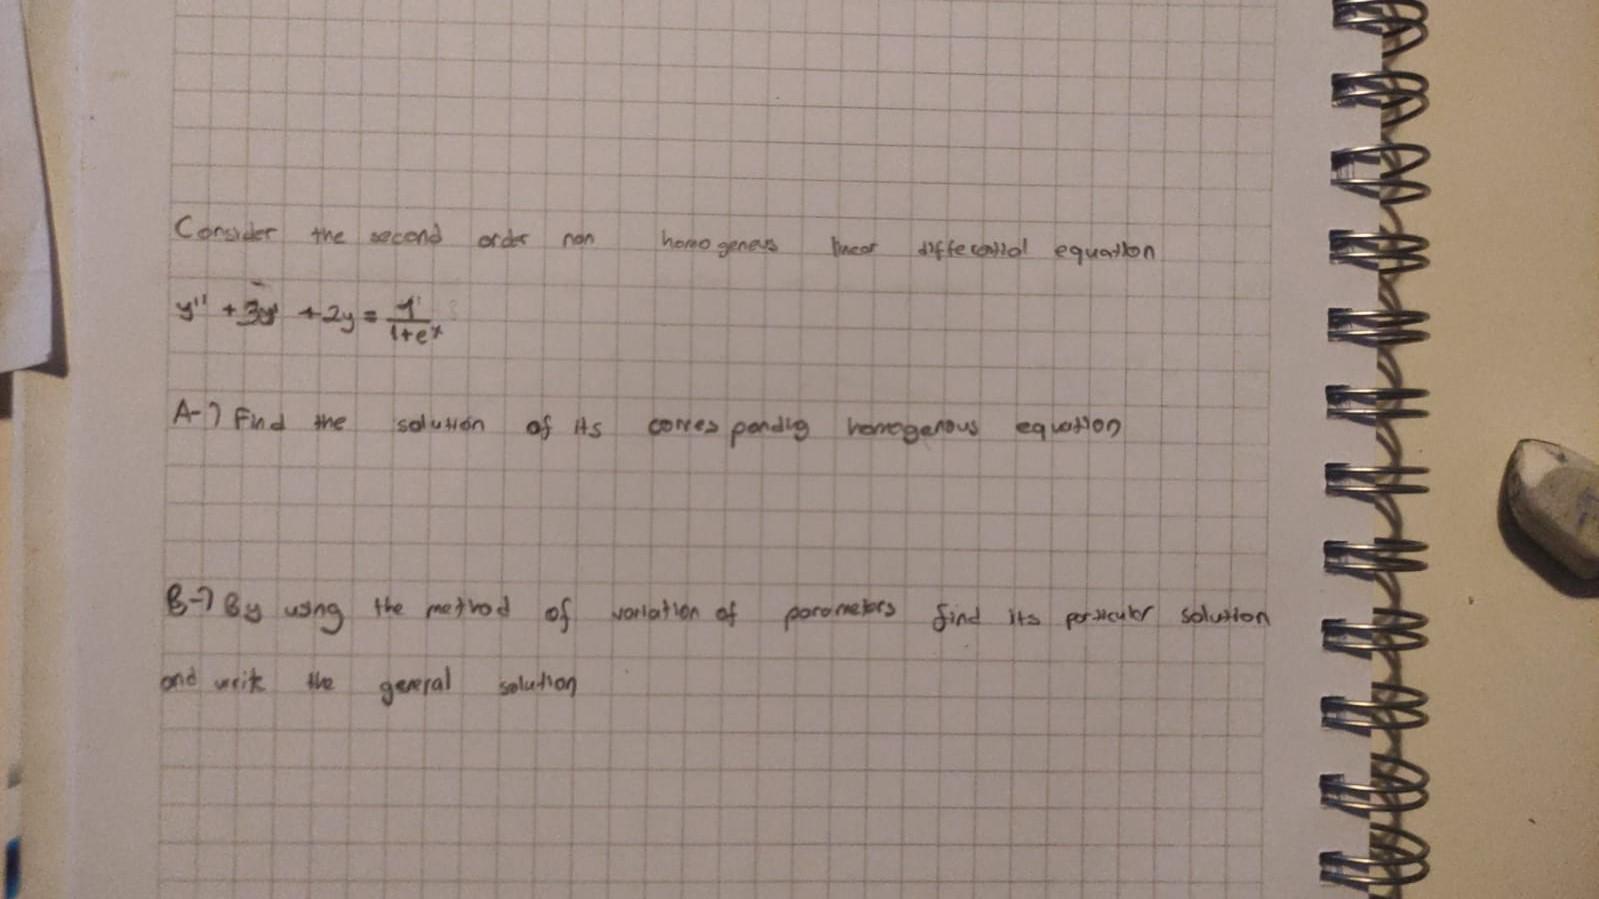 Consider the second order non homogenous linear differential equation
y'' + 3y' + 2y = 1/(1+e^x)
A-) Find the solution of its correspondig homogenous equation
B-) By using the method of variation of parameters find its particular solution
and write the general solution